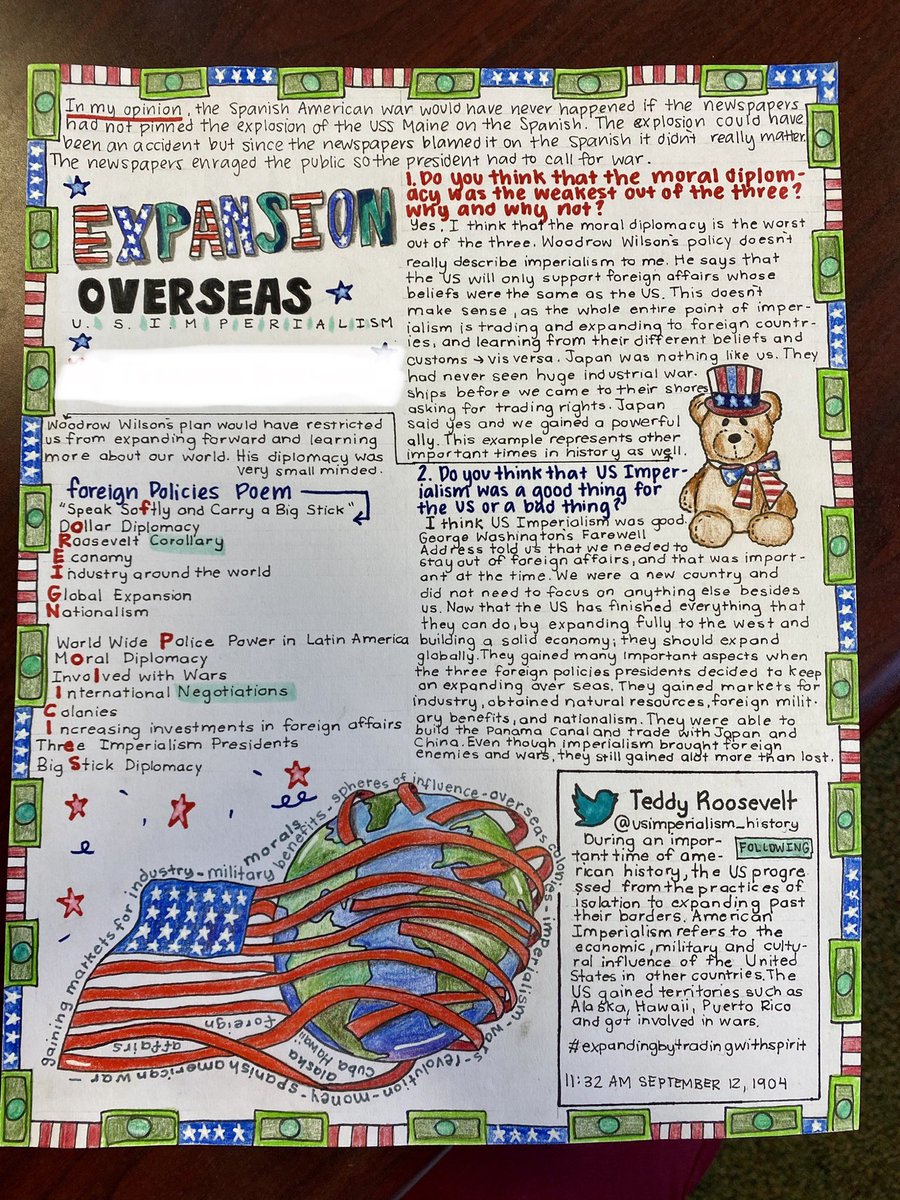 In my opinion, the Spanish American war would have never happened if the newspapers
had not pinned the explosion of the USS Maine on the Spanish. The explosion could have
been an accident but since the newspapers blamed it on the Spanish it didn't really matter.
The newspapers enraged the public so the president had to call for war.
EXPANSION
OVERSEAS
U.S. IMPERIALISM
1. Do you think that the moral diplom-
acy was the weakest out of the three?
why and why not?
Yes, I think that the moral diplomacy is the worst
out of the three. Woodrow Wilson's policy doesn't
really describe imperialism to me. He says that
the US will only support foreign affairs whose
beliefs were the same as the US. This doesn't
make sense, as the whole entire point of imper-
ialism is trading and expanding to foreign countr-
ies, and learning from their different beliefs and
customs → vis versa. Japan was nothing like us. They
had never seen huge industrial war-
ships before we came to their shores
asking for trading rights. Japan
said yes and we gained a powerful
ally. This example represents other
important times in history as well.
Woodrow Wilson's plan would have restricted
us from expanding forward and learning
more about our world. His diplomacy was
very small minded.
foreign Policies Poem
"Speak Softly and Carry a Big Stick"
Dollar Diplomacy
Roosevelt Corollary
Economy
Industry around the world
Global Expansion
Nationalism
World Wide Police Power in Latin America
Moral Diplomacy
Involved with Wars
International Negotiations
Colonies
Increasing investments in foreign affairs
Three Imperialism Presidents
Big Stick Diplomacy
2. Do you think that US Imper-
ialism was a good thing for
the US or a bad thing?
I think US Imperialism was good.
George Washington's Farewell
Address told us that we needed to
stay out of foreign affairs, and that was import-
ant at the time. We were a new country and
did not need to focus on anything else besides
us. Now that the US has finished everything that
they can do, by expanding fully to the west and
building a solid economy; they should expand
globally. They gained many important aspects when
the three foreign policies presidents decided to keep
on expanding over seas. They gained markets for
industry, obtained natural resources, foreign milit-
ary benefits, and nationalism. They were able to
build the Panama Canal and trade with Japan and
China. Even though imperialism brought foreign
enemies and wars, they still gained alot more than lost.
gaining markets for industry - military benefits - spheres of influence - over seas colonies - imperialism - wars - revolution - money - spanish american war -
morals
foreign
affairs
alaska
Cuba Hawaii
Teddy Roosevelt
@usimperialism_history
FOLLOWING
During an impor-
tant time of ame-
rican history, the US progre-
ssed from the practices of
isolation to expanding past
their borders. American
Imperialism refers to the
economic, military and cultu-
ral influence of the United
States in other countries. The
US gained territories such as
Alaska, Hawaii, Puerto Rico
and got involved in wars.
#expandingbytradingwithspirit
11:32 AM SEPTEMBER 12, 1904